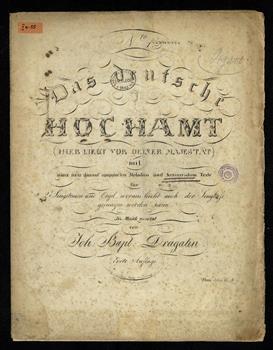 Das Deutsche
HOCHAMT
(HIER LIEGT VOR DEINER MAJESTÄT)
mit
einer neu darauf componirten Melodien und Texte
für
2 Singstimmen und Orgel, wovon leicht auch der Singbass
gesungen werden kann.
In Musik gesetzt
von
Joh. Bapt. Dragatin
Erste Auflage